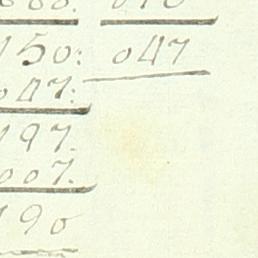 150: 047
047:
197.
007.
190